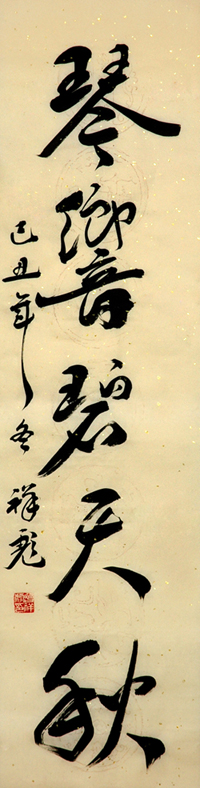 琴響碧天秋
己丑年冬祥彪